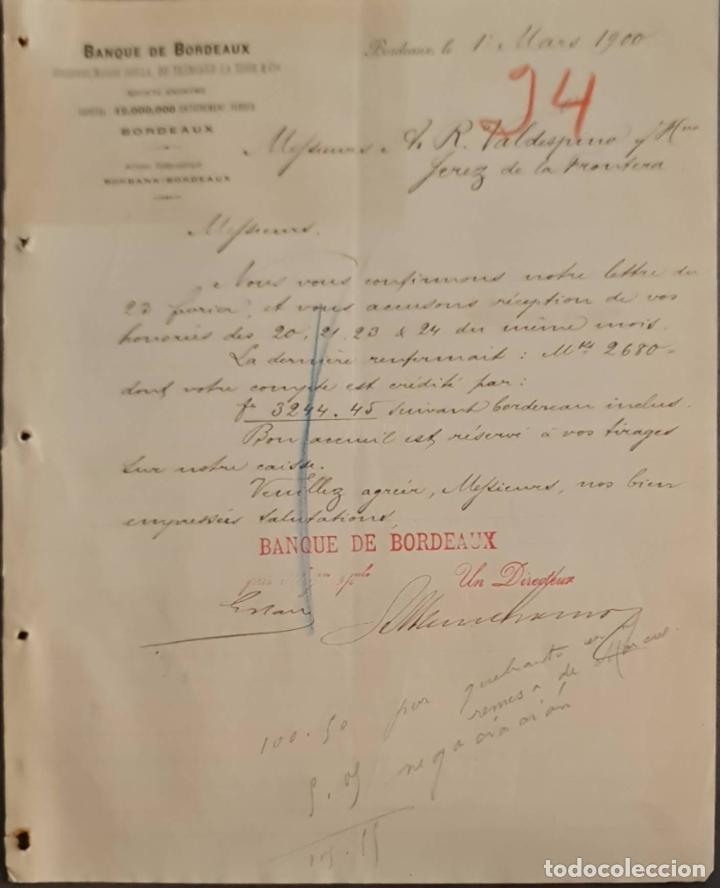 BANQUE DE BORDEAUX
SOCIÉTÉ ANONYME
CAPITAL 10,000,000 ENTIÈREMENT VERSÉS
BORDEAUX
BORBANK-BORDEAUX
Bordeaux, le 1r Mars 1900
94
Messieurs A. R. Valdespino y Hno
Jerez de la Frontera
Messieurs.
Nous vous confirmons notre lettre du
23 février, et vous accusons réception de vos
honorées des 20, 21, 23 & 24 du même mois.
La dernière renfermait : Mks 2680 -
dont votre compte est crédité par :
f. 3244.45 suivant bordereau inclus.
Bon accueil est réservé à vos tirages
sur notre caisse.
Veuillez agréer, Messieurs, nos bien
empressées salutations,
BANQUE DE BORDEAUX
Un Directeur
100.50 por quebranto en
remesa de Marcos
5.05 negociación
105.55
todocoleccion
todocoleccion.net